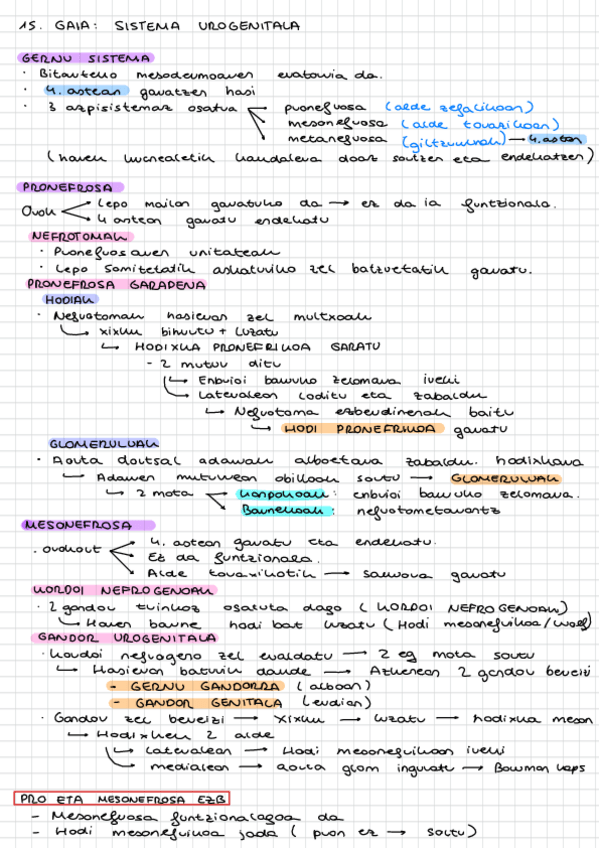 15. GAIA: SISTEMA UROGENITALA
GERNU SISTEMA
· Bitarteko mesodermoaren eratorria da.
· 4. astean garatzen hasi
· 3 azpisistemaz osatua
pronefrosa (alde zefalikoan)
mesonefrosa (alde torazikoan)
metanefrosa (giltzurrunak) → 4. astean
(hauen lurrealetik kaudalera doaz sortzen eta endekatzen)
PRONEFROSA
Ovoh
Lepo mailan garatuko da → ez da ia funtzionala.
4 astean garatu endekatu
NEFROTOMAK
· Pronefrosaren unitateak
· Lepo somitetatik askaturiko zel batzuetatik garatu.
PRONEFROSA GARAPENA
HODIAK
· Nefrotomak hasieran zel multxoak
xixku bihurtu + luzatu
HODIXKA PRONEFRIKOA GARATU
- 2 mutur ditu
Enbrioi barruko zelomara ireki
Lateralean loditu eta zabaldu
Nefrotoma ezberdinenak batu
HODI PRONEFRIKOA garatu
GLOMERULUAK
· Aorta dortsal adarrak alboetara zabaldu. hodixkara
Adarren muturrean obilloak sortu → GLOMERULUAK
2 mota
Kanpokoak: enbrioi barruko zelomara.
Barnekoak: nefrotometarantz
MESONEFROSA
. ovohout
4. astean garatu eta endekatu.
Ez da funtzionala.
Alde toraxikotik → sakrora garatu
KORDOI NEFROGENOAK
· 2 gandor trinkoz osatuta dago (KORDOI NEFROGENOAK)
Hauen barne hodi bat luzatu (Hodi mesonefrikoa/wolf)
GANDOR UROGENITALA
· Kordoi nefrogeno zel eraldatu → 2 eg mota sortu
Hasieran baturik daude → Azkenean 2 gandor bereizi
- GERNU GANDORRA (alboan)
- GANDOR GENITALA (erdian)
· Gandor zel bereizi → Xixku → luzatu → hodixka meson
Hodixkek 2 alde
lateralean → Hodi mesonefrikoan ireki
medialean → aorta glom inguratu → Bowman kaps
PRO ETA MESONEFROSA EZB
- Mesonefrosa funtzionalagoa da
- Hodi mesonefrikoa jada (pron ez → sortu)